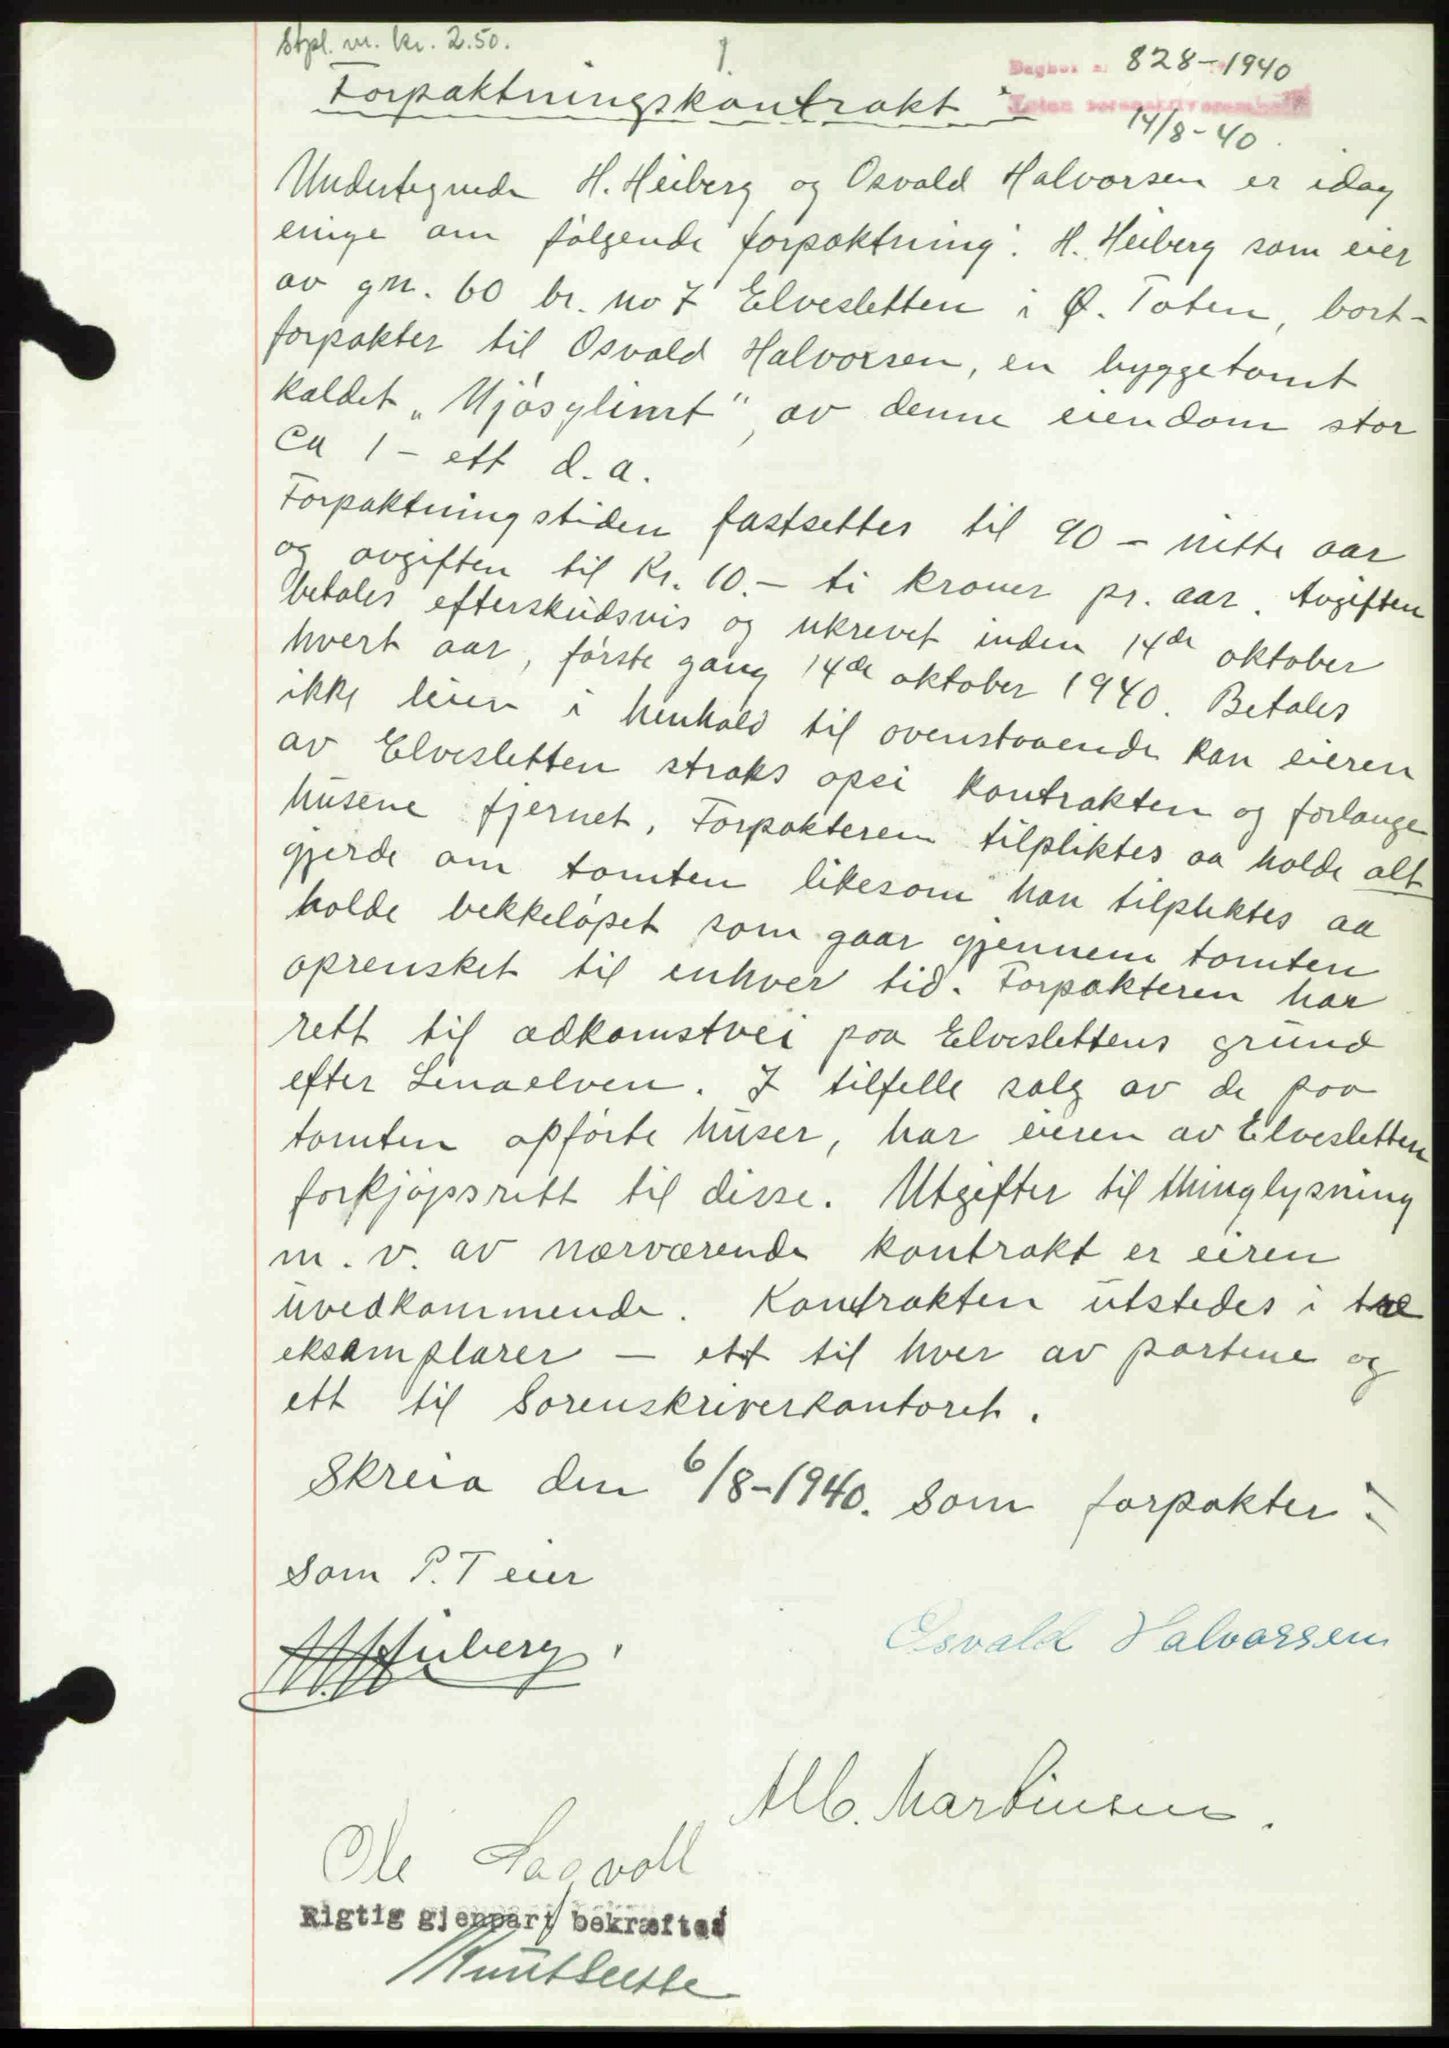 Stpl. m. kr. 2.50.
828-1940
Forpaktningskontrakt
14/8-40
Undertegnede H. Heiberg og Osvald Halvorsen er idag
enige om følgende forpaktning: H. Heiberg som eier
av gn. 60 br. no 7 Elvesletten i Ø. Toten, bort-
forpakter til Osvald Halvorsen, en byggetomt
kaldet „Mjøsglimt”, av denne eiendom stor
ca 1 - ett d.a.
Forpaktningstiden fastsettes til 90 - nitti aar
og avgiften til Kr. 10.- ti kroner pr. aar. Avgiften
betales efterskudsvis og ukrevet inden 14de oktober
hvert aar, første gang 14de oktober 1940. Betales
ikke leien i henhold til ovenstaaende kan eieren
av Elvesletten straks opsi kontrakten og forlange
husene fjernet. Forpakteren tilpliktes aa holde alt
gjerde om tomten likesom han tilpliktes aa
holde bekkeløpet som gaar gjennem tomten
oprensket til enhver tid. Forpakteren har
rett til adkomstvei paa Elveslettens grund
efter Lenaelven. I tilfelle salg av de paa
tomten opførte huser, har eieren av Elvesletten
forkjøpsrett til disse. Utgifter til thinglysning
m. v. av nærværende kontrakt er eiren
uvedkommende. Kontrakten utstedes i tre
eksamplarer - ett til hver av partene og
ett til Sorenskriverkontoret.
Skreia den 6/8-1940. Som forpakter:
som P.T eier
H. Heiberg.
Osvald Halvorsen
Alb. Martinsen.
Ole Sagvoll
Rigtig gjenpart bekræftes